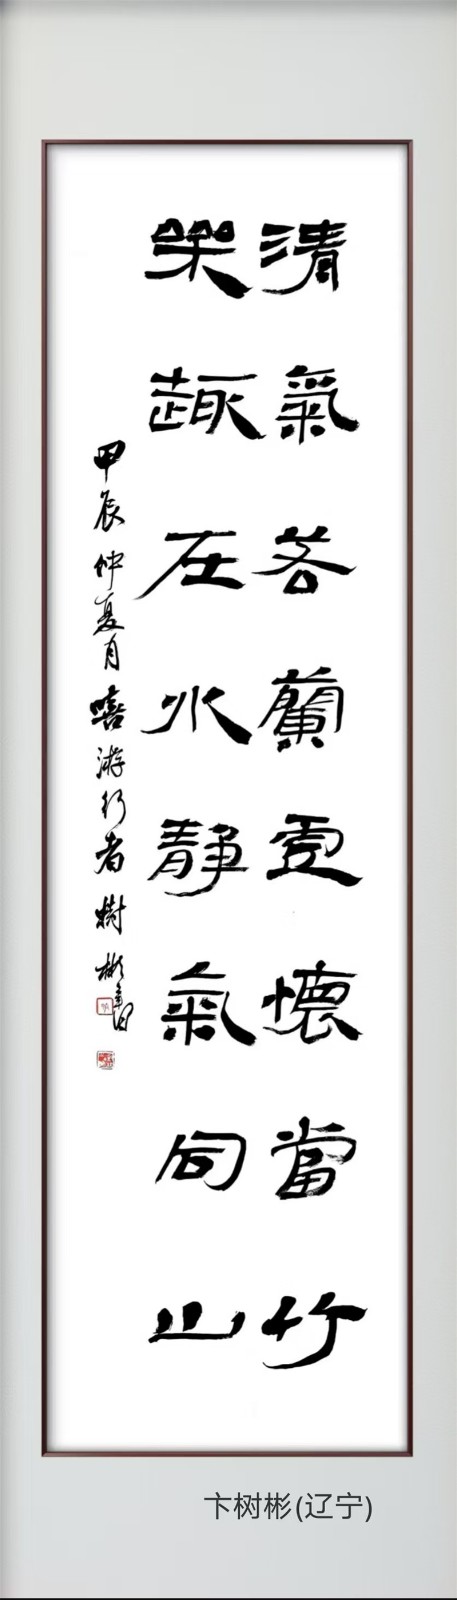 清氣若蘭虛懷當竹
樂趣在水靜氣同山
甲辰仲夏月嘻游行者樹彬書
卞树彬(辽宁)